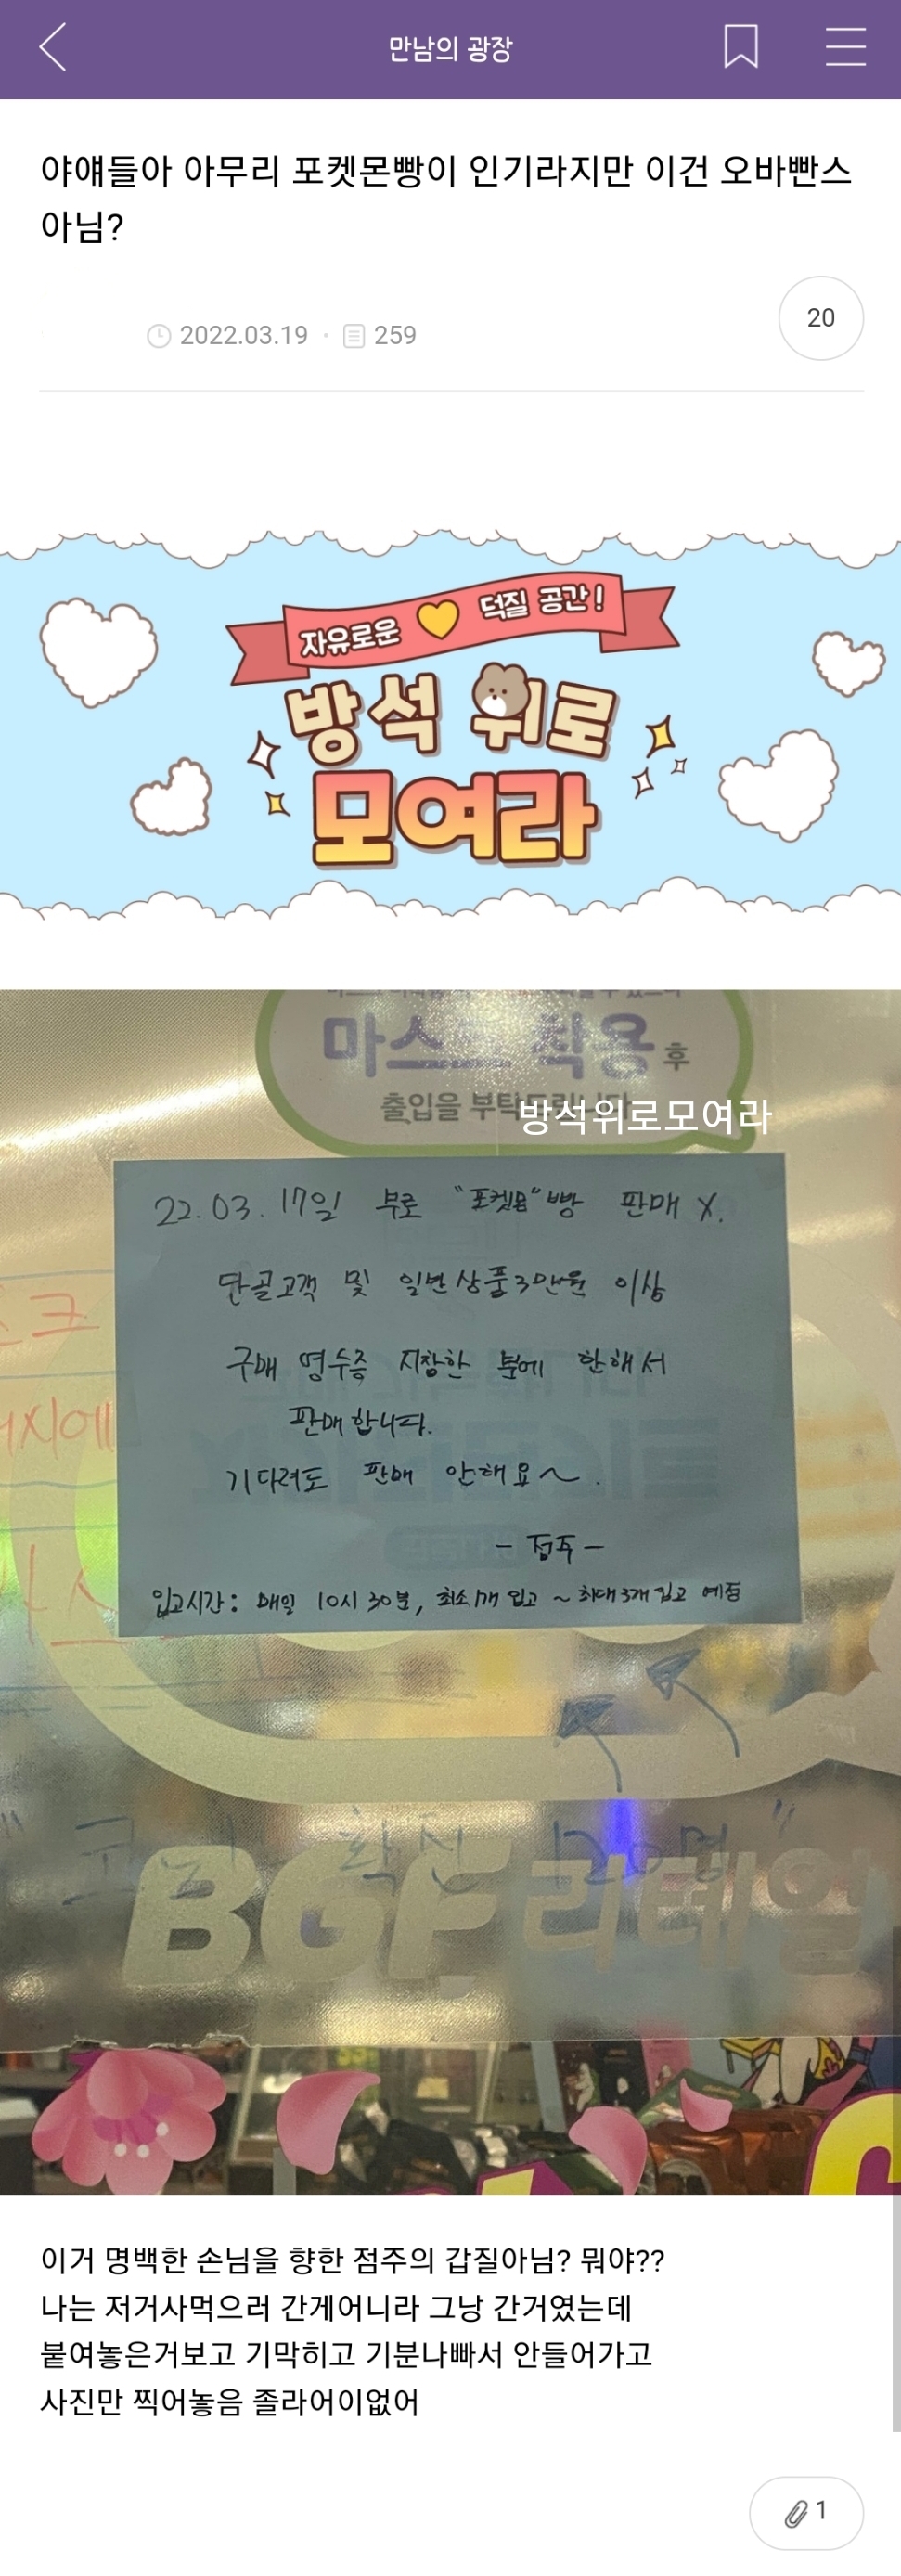 만남의 광장
야얘들아 아무리 포켓몬빵이 인기라지만 이건 오바빤스
아님?
2022.03.19 · 259
20
자유로운 덕질 공간!
방석 위로
모여라
마스크 착용 후
출입을 부탁드립니다
방석위로모여라
22.03.17일 부로 "포켓몬"빵 판매 X.
단골고객 및 일반상품 3만원 이상
구매 영수증 지참한 분에 한해서
판매합니다.
기다려도 판매 안해요~.
- 점주 -
입고시간: 매일 10시 30분, 최소 1개 입고 ~ 최대 3개 입고 예정
BGF리테일
이거 명백한 손님을 향한 점주의 갑질아님? 뭐야??
나는 저거사먹으러 간게어니라 그냥 간거였는데
붙여놓은거보고 기막히고 기분나빠서 안들어가고
사진만 찍어놓음 졸라어이없어
1